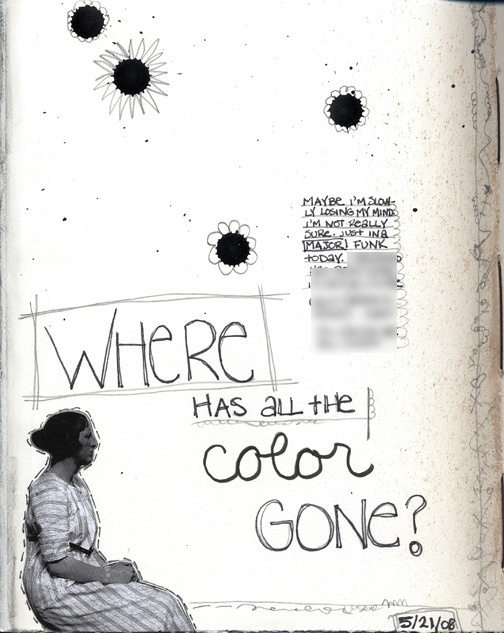 MAYBE I'M SLOW-
LY LOSING MY MIND
I'M NOT REALLY
SURE. JUST IN A
MAJOR FUNK
TODAY.
WHERE
HAS all tHe
color
GONE?
5/21/08